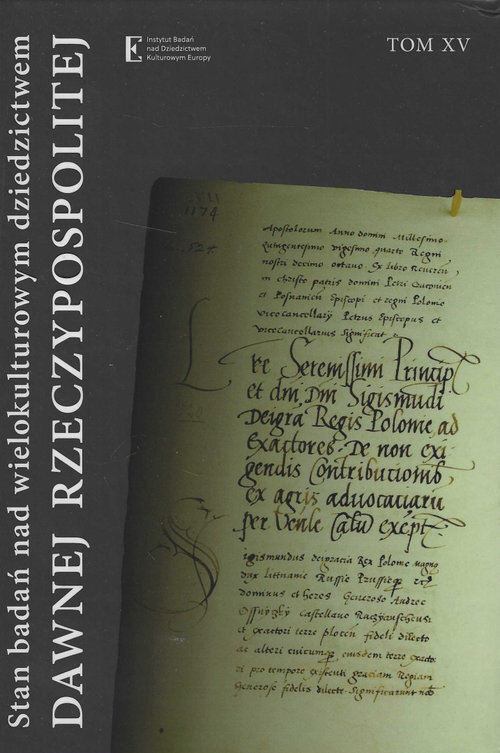 Stan badań nad wielokulturowym dziedzictwem
DAWNEJ RZECZYPOSPOLITEJ
Instytut Badań
nad Dziedzictwem
Kulturowym Europy
TOM XV
XVII
1174
Apostolorum Anno domini Millesimo
quingentesimo vigesimo quarto Regni
nostri decimo octavo. Ex libro Reveren
in christo patris domini Petri
et Posnanien Episcopi et regni Polonie
vicecancellarij Petrus Episcopus et
vicecancellarius significat
Lre Serenissimi Principi
et dni Dni Sigismudi
Deigra Regis Polonie ad
Exactores. De non exi
gendis Contributionib
Ex agris advocatiaru
per Venle exept
Sigismundus deigracia Rex Polonie magnus
dux littuanie Russie Prussieq
dominus et heres Generoso Andree
castellano
et exactori terre plocen fideli dilecto
ac alteri cuicumq eiusdem terre exacto
ri pro tempore existenti graciam Regiam
Generose fidelis dilecte. Significarunt nob